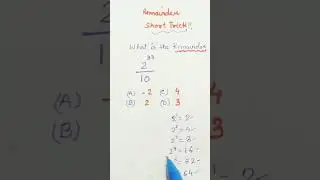 Remainder
Short Trick!!
What is the Remainder
2³³
10
(A) - 2 (C) 4
(B) 2 (D) 3
(B)
2² = 4
2³ = 8
2⁴ = 16
= 32
64